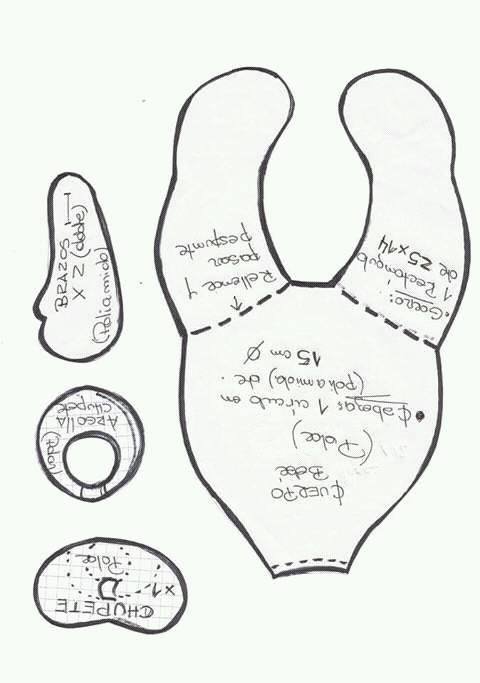 CUERPO
Bebé
(Polar)
• Cabeza: 1 círculo en
(poliamida) de.
15 cm Ø
Rellenar y
pasar
pespunte
• Gorro:
1 Rectángulo
de 25x14
BRAZOS
x 2 (doble)
(Poliamida)
ARGOLLA
CHUPETE
CHUPETE
x1
Polar